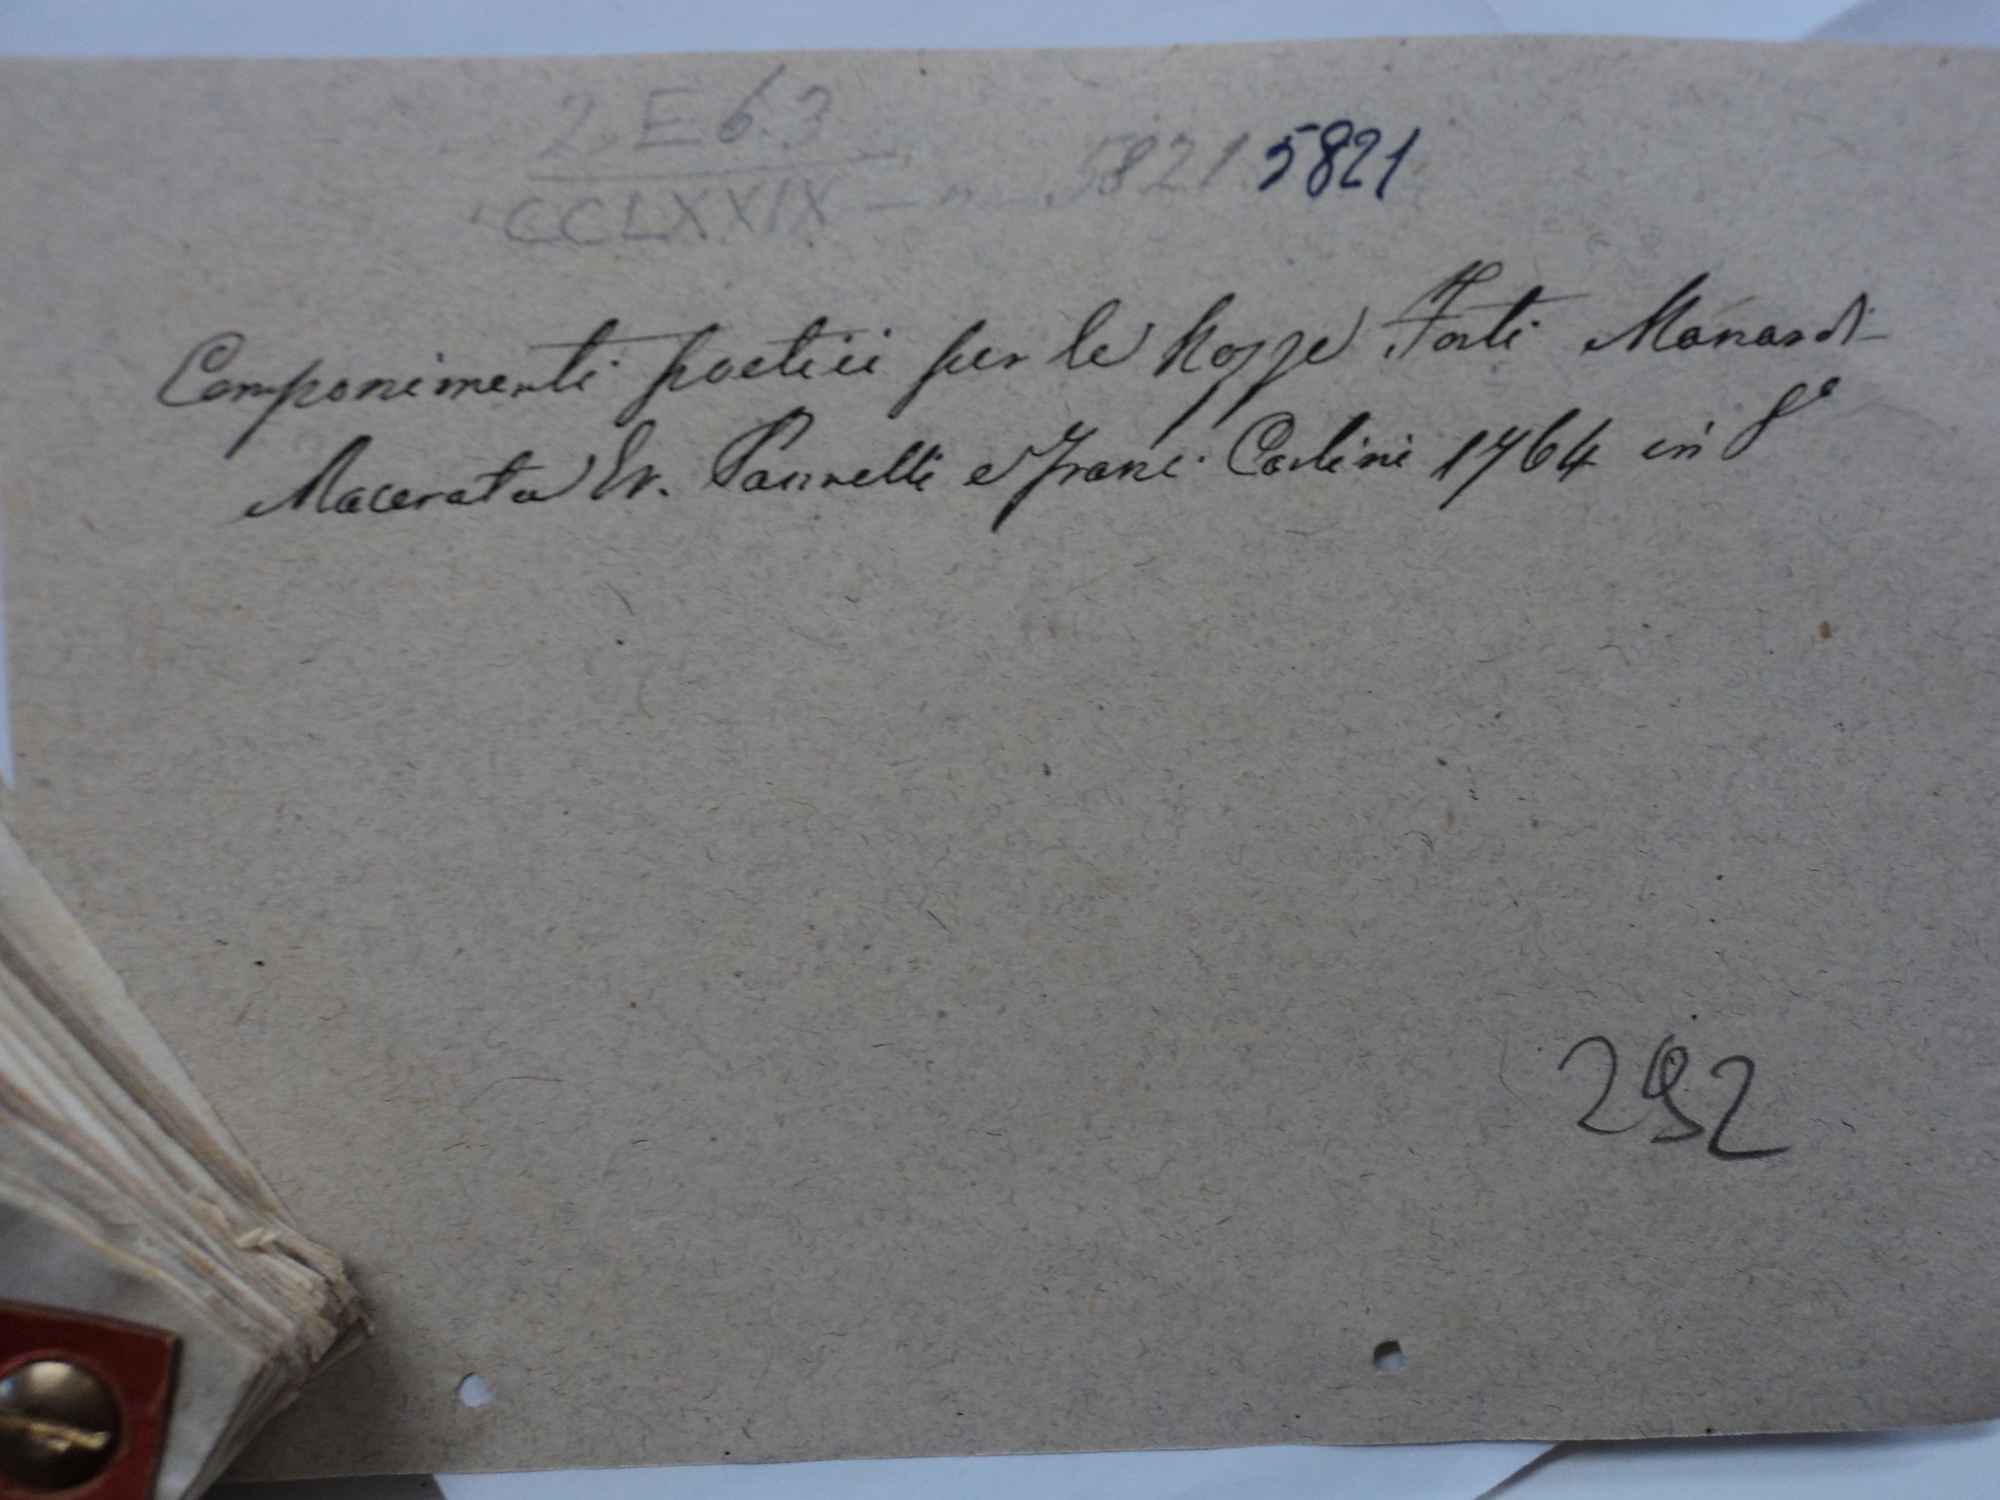 2. E 6.3
CCLXXIX - n. 5821 5821
Componimenti poetici per le Nozze Forti Monardi
Macerata Er. Pannelli e Franc. Cortini 1764 in 8°
292